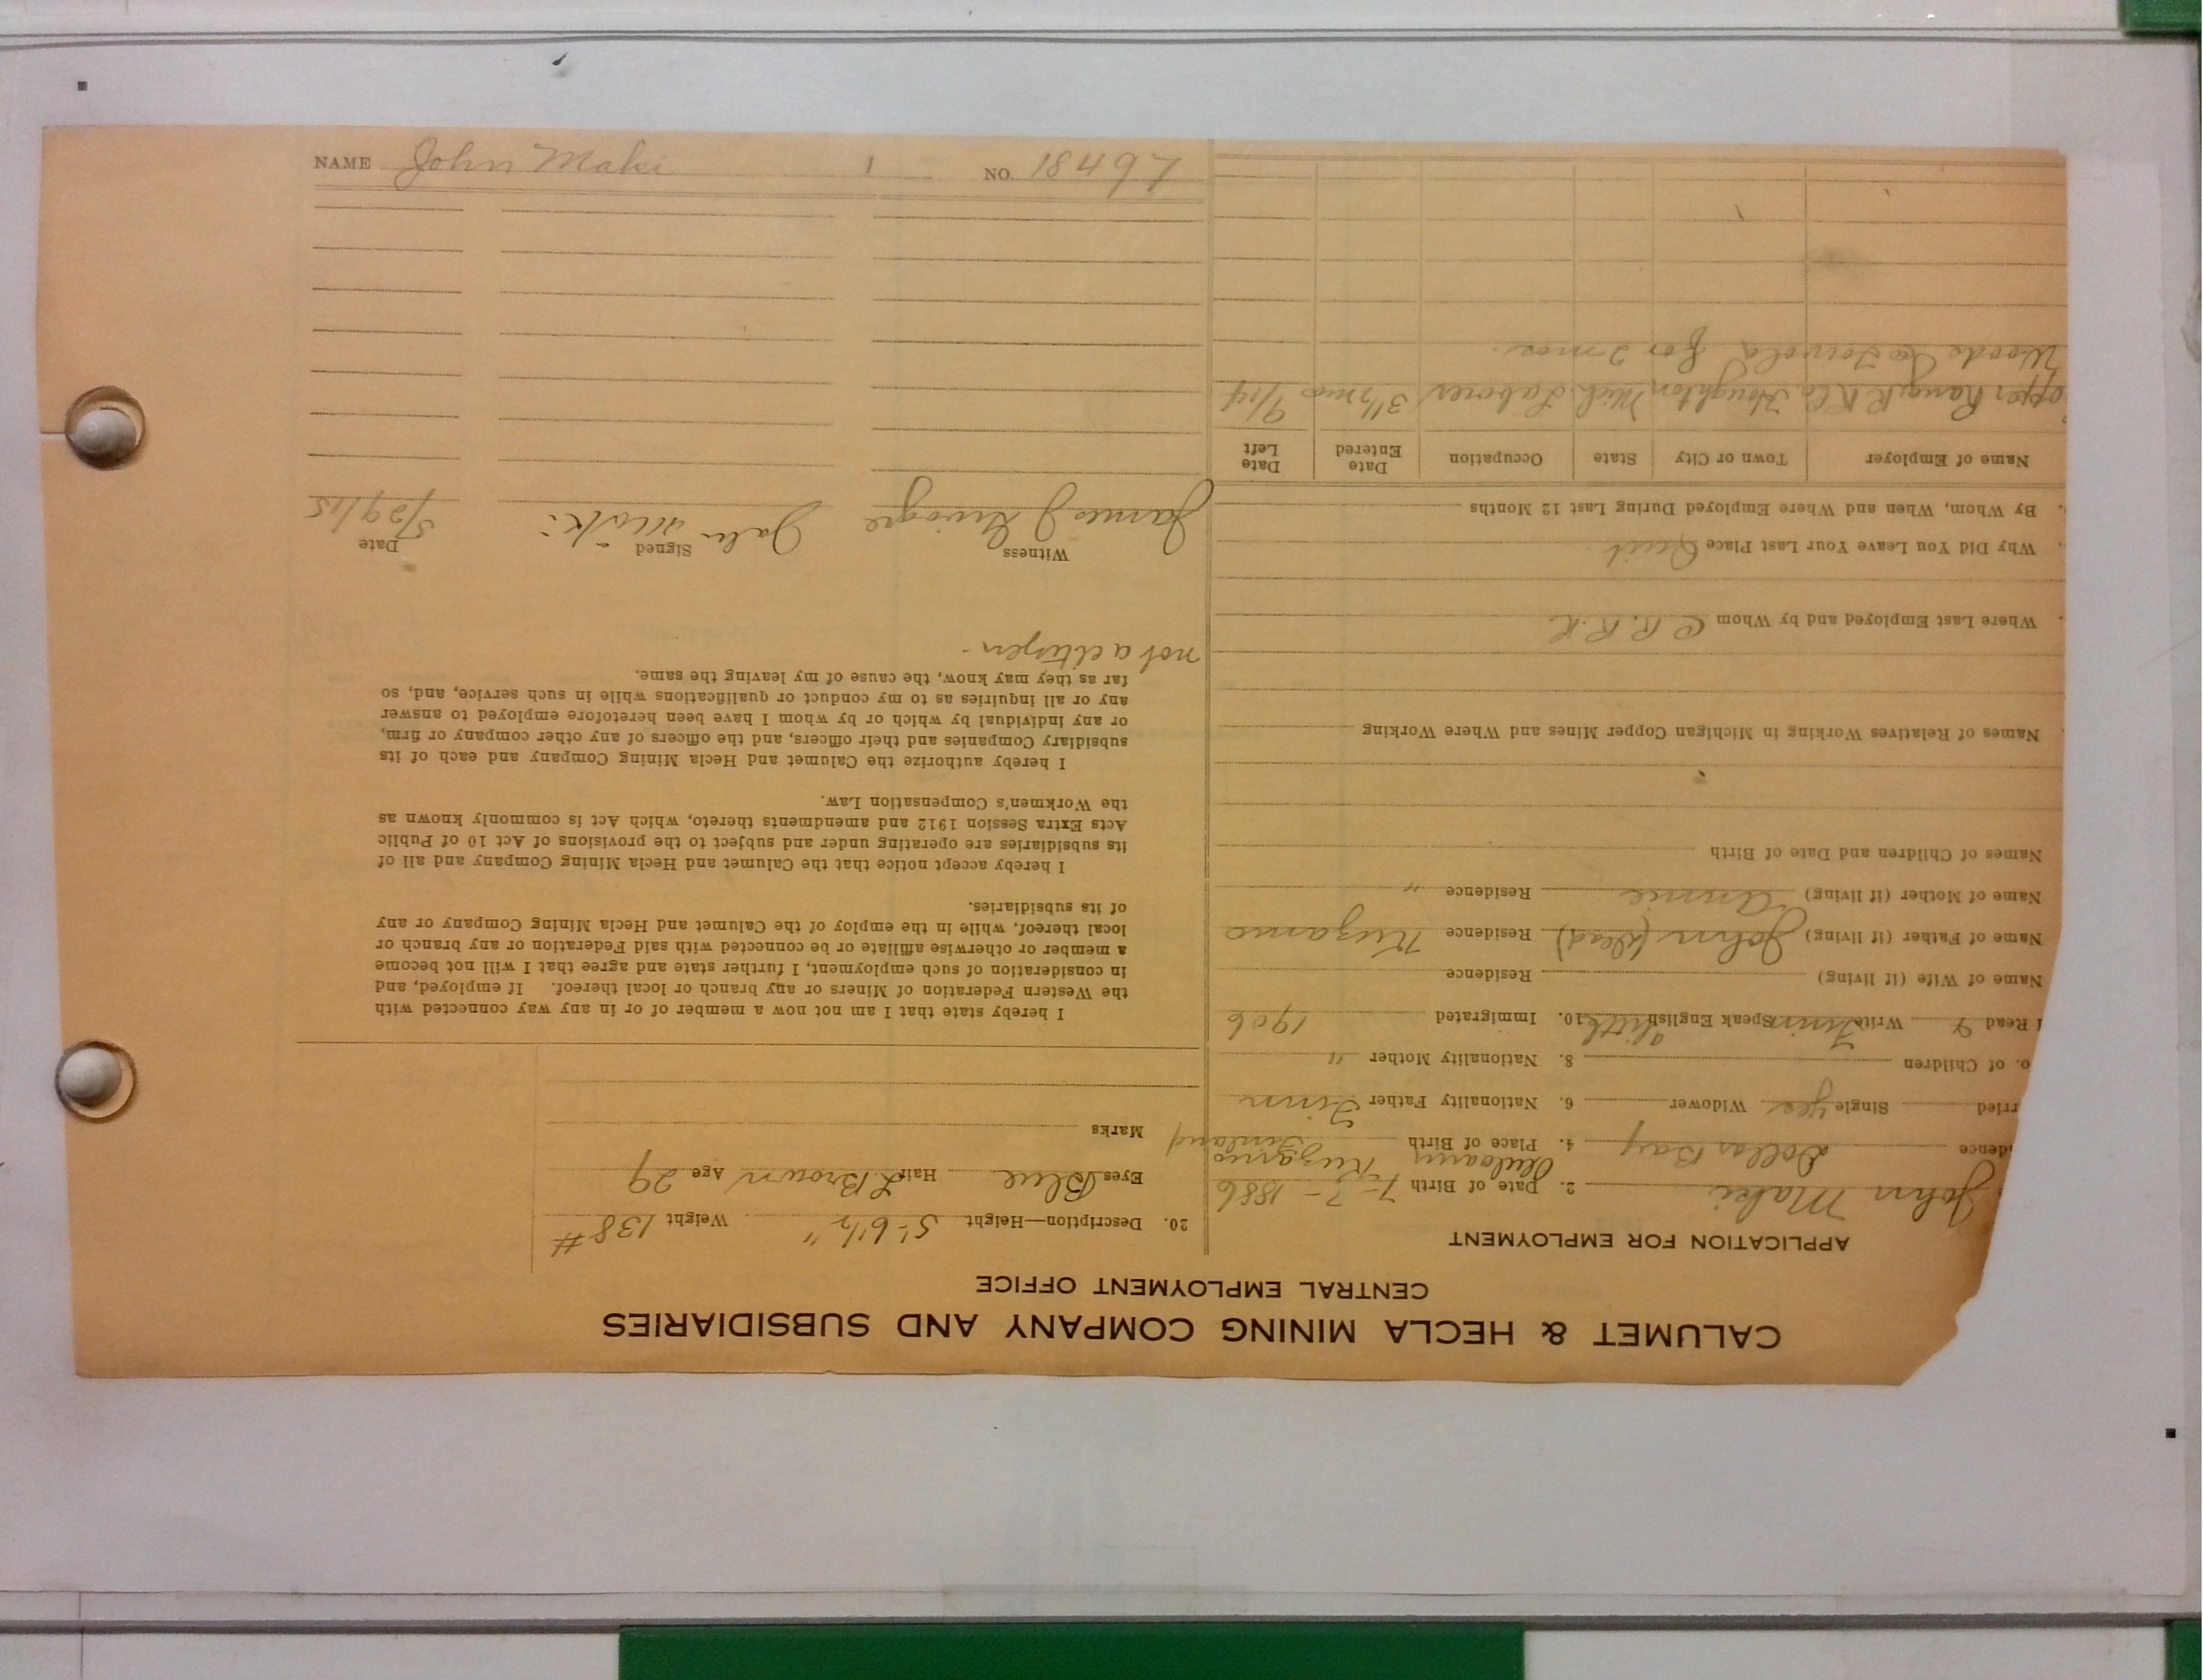 CALUMET & HECLA MINING COMPANY AND SUBSIDIARIES
CENTRAL EMPLOYMENT OFFICE
APPLICATION FOR EMPLOYMENT
John Maki 2. Date of Birth 7-7-1886
idence Dollar Bay 4. Place of Birth Finland
rried Single yes Widower 6. Nationality Father Finn
o. of Children 8. Nationality Mother "
I Read & Write Finn Speak English little 10. Immigrated 1906
Name of Wife (if living) Residence
Name of Father (if living) John (dead) Residence
Name of Mother (if living) Annie Residence "
Names of Children and Date of Birth
Names of Relatives Working in Michigan Copper Mines and Where Working
Where Last Employed and by Whom C. R. R. R.
Why Did You Leave Your Last Place Quit
By Whom, When and Where Employed During Last 12 Months
Name of Employer Town or City State Occupation Date Entered Date Left
opper Range R R Co. Houghton Mich Laborer 3 1/2 mos 9/14
Woods for 2 mos.
20. Description—Height 5'-6 1/2" Weight 138 #
Eyes Blue Hair L Brown Age 29
Marks
I hereby state that I am not now a member of or in any way connected with
the Western Federation of Miners or any branch or local thereof. If employed, and
in consideration of such employment, I further state and agree that I will not become
a member or otherwise affiliate or be connected with said Federation or any branch or
local thereof, while in the employ of the Calumet and Hecla Mining Company or any
of its subsidiaries.
I hereby accept notice that the Calumet and Hecla Mining Company and all of
its subsidiaries are operating under and subject to the provisions of Act 10 of Public
Acts Extra Session 1912 and amendments thereto, which Act is commonly known as
the Workmen's Compensation Law.
I hereby authorize the Calumet and Hecla Mining Company and each of its
subsidiary Companies and their officers, and the officers of any other company or firm,
or any individual by which or by whom I have been heretofore employed to answer
any or all inquiries as to my conduct or qualifications while in such service, and, so
far as they may know, the cause of my leaving the same.
not a citizen
Witness Signed Date
James J 5/29/15
NAME John Maki 1 NO. 18497